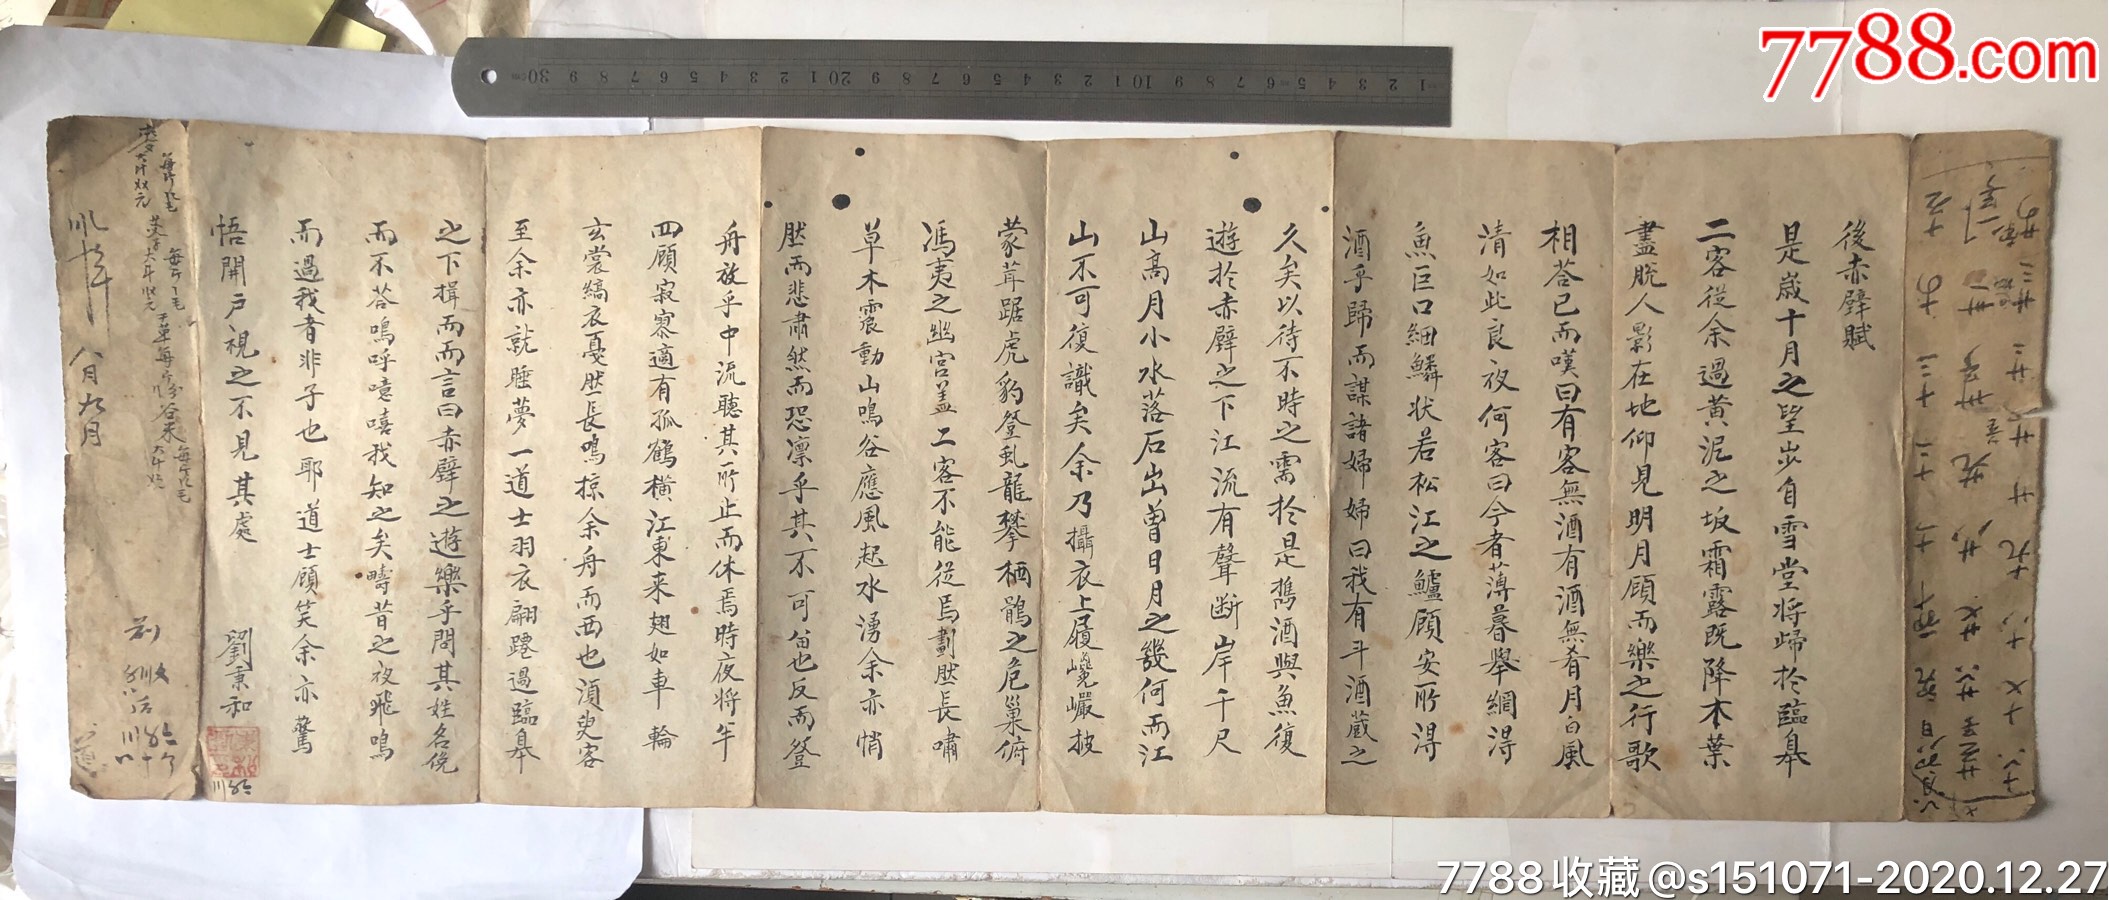 7788.com
後赤壁賦
是歲十月之望步自雪堂將歸於臨皋
二客從余過黃泥之坂霜露既降木葉
盡脫人影在地仰見明月顧而樂之行歌
相荅已而嘆曰有客無酒有酒無肴月白風
清如此良夜何客曰今者薄暮舉網淂
魚巨口細鱗狀若松江之鱸顧安所淂
酒乎歸而謀諸婦婦曰我有斗酒蔵之
久矣以待不時之需於是攜酒與魚復
遊於赤壁之下江流有聲斷岸千尺
山高月小水落石出曾日月之幾何而江
山不可復識矣余乃攝衣上履巉巖披
蒙茸踞虎豹登虬龍攀栖鶻之危巢俯
馮夷之幽宮盖二客不能従焉劃肰長嘯
草木震動山鳴谷應風起水湧余亦悄
肰而悲肅然而恐凛乎其不可畱也反而登
舟放乎中流聽其所止而休焉時夜將半
四顧寂寥適有孤鶴橫江東来翅如車輪
玄裳縞衣戛肰長鳴掠余舟而西也湏臾客
至余亦就睡夢一道士羽衣翩躚過臨皋
之下揖而而言曰赤壁之遊樂乎問其姓名俛
而不荅嗚呼噫嘻我知之矣疇昔之夜飛鳴
而過我者非子也耶道士顧笑余亦驚
悟開戶視之不見其處
劉秉和
八月九月
30 9 8 7 6 5 4 3 2 1 20 9 8 7 6 5 4 3 2 1 10 9 8 7 6 5 4 3 2 1
7788收藏@s151071-2020.12.27